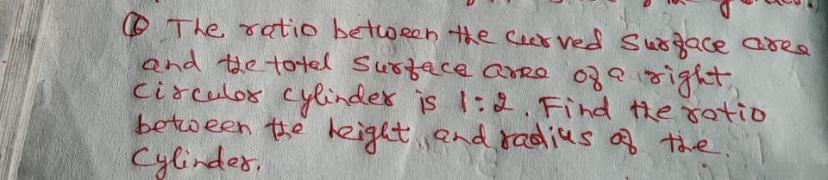 ⑥ The ratio between the curved surface area
and the total surface area of a right
circular cylinder is 1:2. Find the ratio
between the height and radius of the
Cylinder.